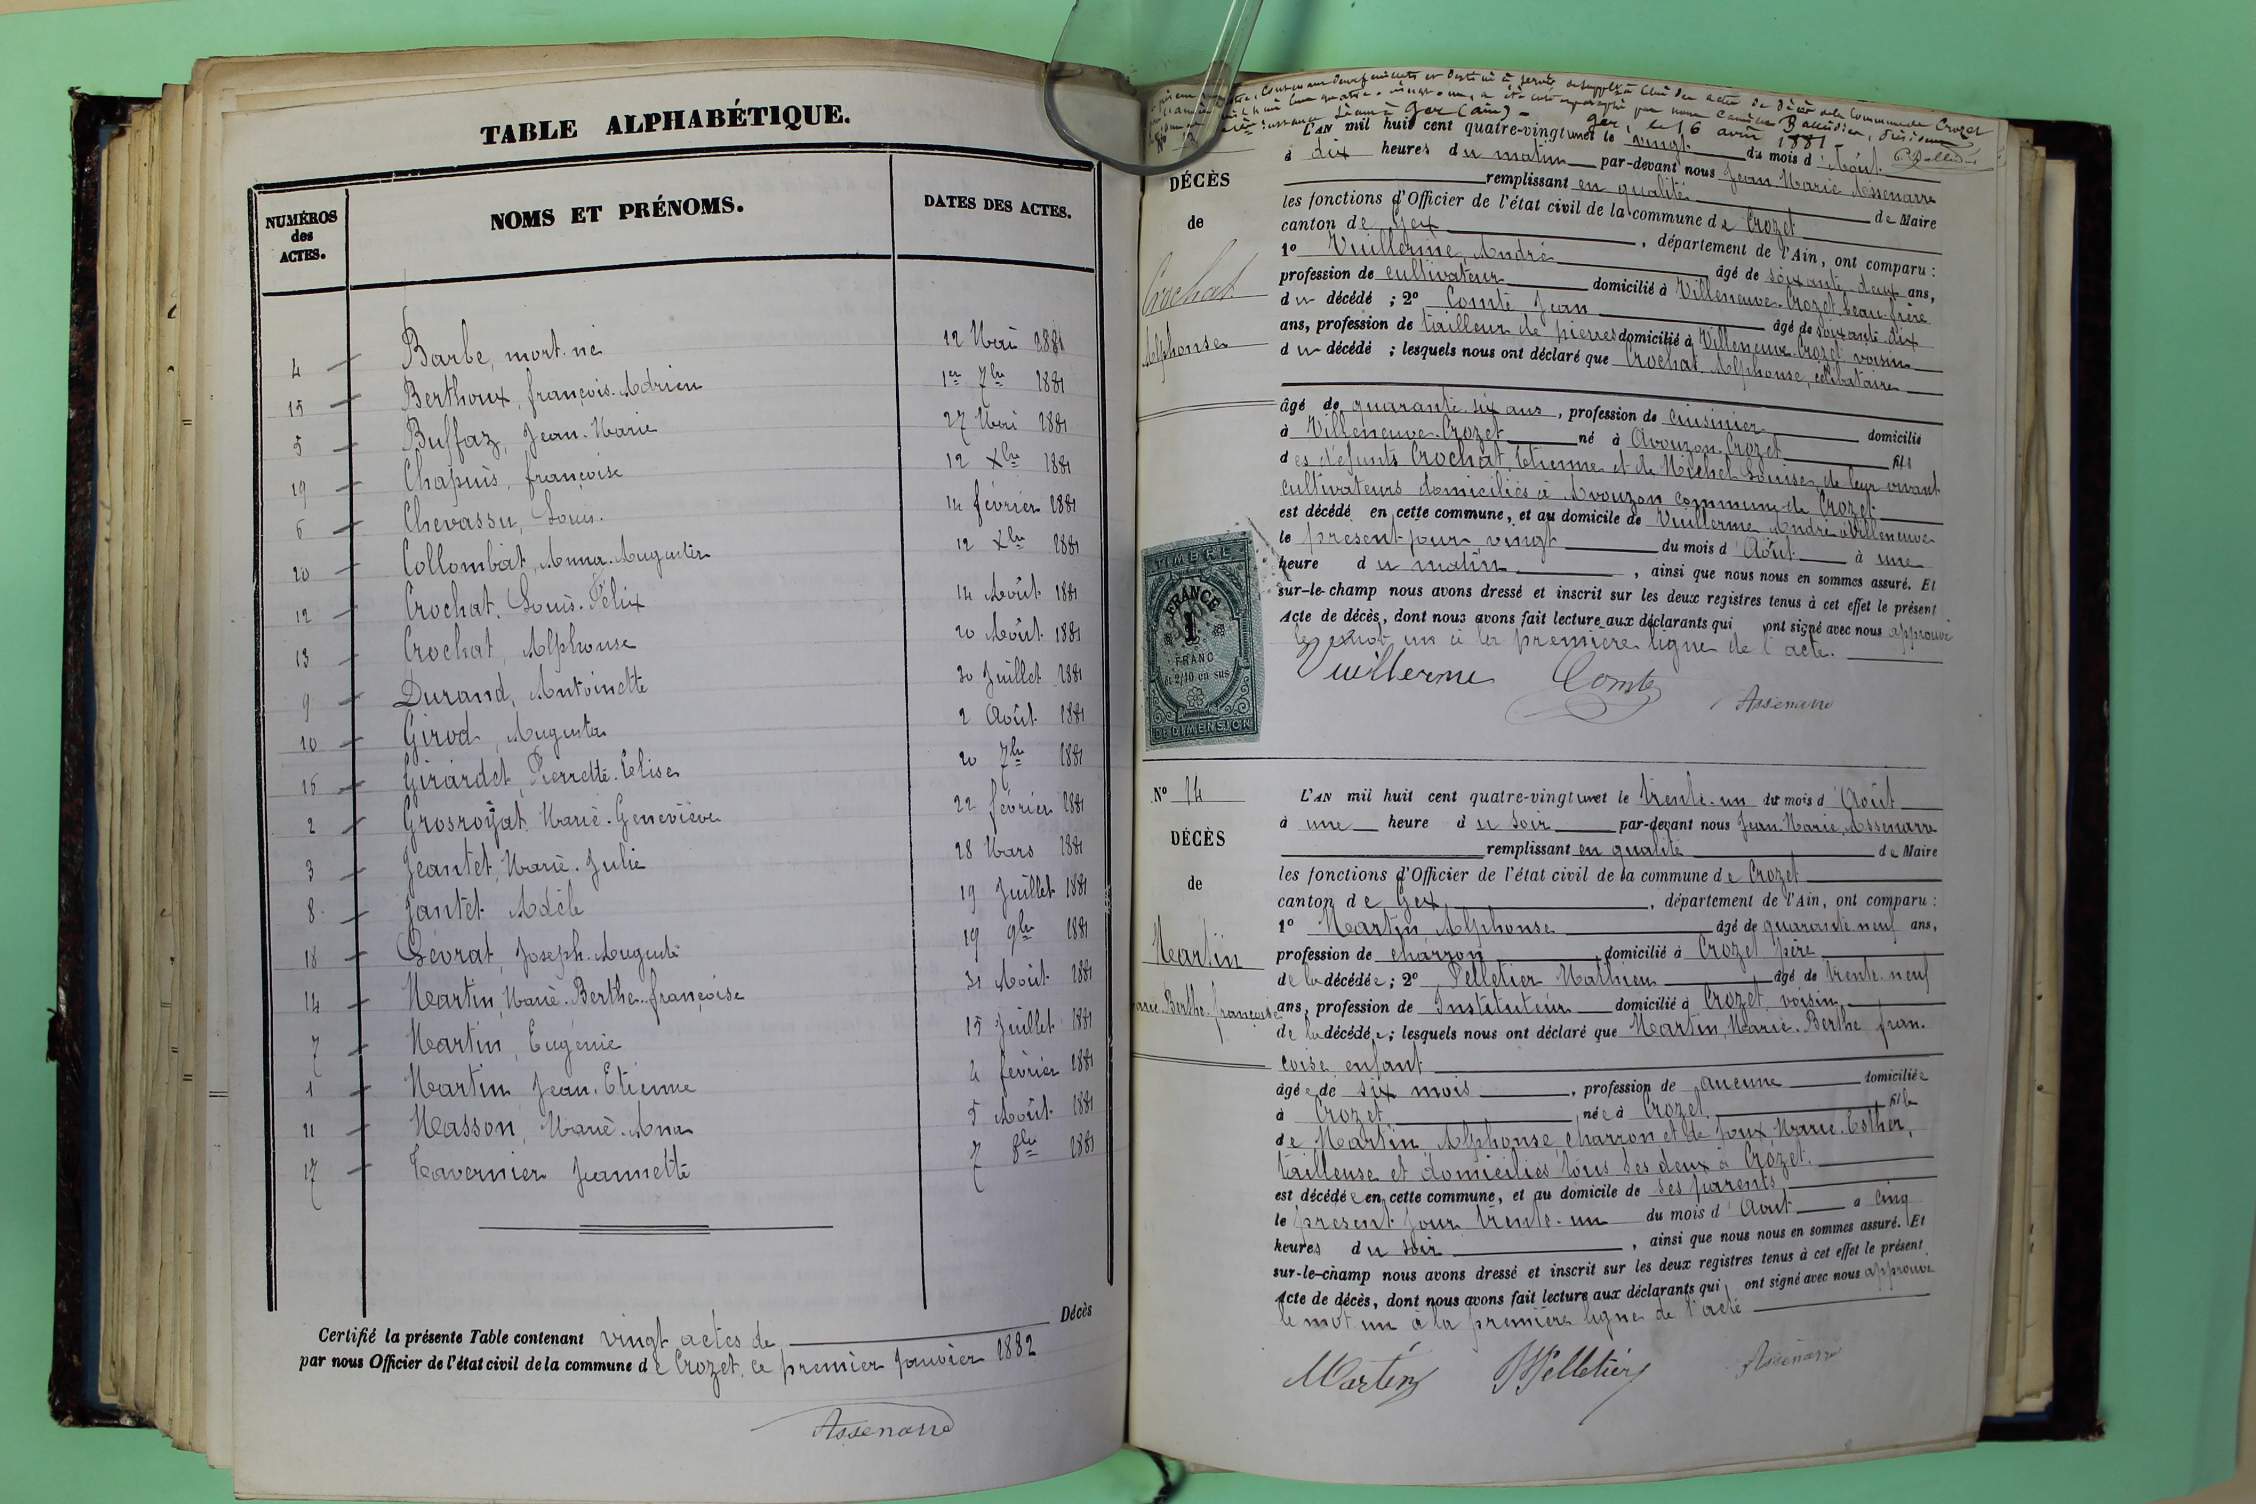 TABLE ALPHABÉTIQUE.
NUMÉROS des ACTES. NOMS ET PRÉNOMS. DATES DES ACTES.
4 Barbe, mort-né 12 Mai 1881
15 Berthoux, françois-Adrien 1er 7bre 1881
5 Buffaz, Jean-Marie 27 Mai 1881
19 Chapuis, françoise 12 Xbre 1881
6 Chevassu, Louis. 14 février 1881
20 Collombat, Anna-Augustin 12 Xbre 1881
12 Crochat, Louis-Félix 14 Août 1881
13 Crochat, Alphonse 20 Août 1881
9 Durand, Antoinette 30 Juillet 1881
10 Girod, Augusta 2 Août 1881
16 Girardet, Pierrette-Elise 20 7bre 1881
2 Grosroyat, Marie-Geneviève 22 février 1881
3 Jeantet, Marie-Julie 28 Mars 1881
8 Jantet Adèle 19 Juillet 1881
18 Levrat, Joseph-Auguste 19 9bre 1881
14 Martin, Marie-Berthe-françoise 31 Août 1881
7 Martin, Eugénie 15 Juillet 1881
1 Martin Jean-Etienne 4 février 1881
11 Masson, Marie-Ana 5 Août 1881
17 Tavernier Jeannette 7 8bre 1881
Certifié la présente Table contenant vingt actes de Décès
par nous Officier de l'état civil de la commune de Crozet, ce premier Janvier 1882
Assenarre
destiné à servir de supplt à celui des actes de décès de la commune de Crozet
Gex (ain) - Gex, le 16 avril 1881 -
L'AN mil huit cent quatre-vingt un et le vingt du mois d'Août
à dix heures du matin par-devant nous Jean-Marie Assenarre
DÉCÈS
remplissant en qualité de Maire
les fonctions d'Officier de l'état civil de la commune de Crozet
de
canton de Gex, département de l'Ain, ont comparu :
1º Vuillerme, André âgé de soixante-deux ans,
Crochat
profession de cultivateur domicilié à Villeneuve-Crozet beau-frère
du décédé ; 2º Comte Jean âgé de soixante-dix
Alphonse
ans, profession de tailleur de pierres domicilié à Villeneuve-Crozet voisin
du décédé ; lesquels nous ont déclaré que Crochat Alphonse, célibataire
âgé de quarante-six ans, profession de cuisinier domicilié
à Villeneuve-Crozet né à Avouzon-Crozet fils
des défunts Crochat Etienne et de Michel Louise, de leur vivant
cultivateurs domiciliés à Avouzon commune de Crozet
est décédé en cette commune, et au domicile de Vuillerme André à Villeneuve
le présent jour vingt du mois d'Août à une
heure du matin, ainsi que nous nous en sommes assuré. Et
sur-le-champ nous avons dressé et inscrit sur les deux registres tenus à cet effet le présent
Acte de décès, dont nous avons fait lecture aux déclarants qui ont signé avec nous approuvé
le mot un à la première ligne de l'acte.
Vuillerme Comte Assenarre
TIMBRE
FRANCE
1F
FRANC
et 2/10 en sus
DE DIMENSION
Nº 14
L'AN mil huit cent quatre-vingt un et le trente-un du mois d'Août
à une heure du soir par-devant nous Jean-Marie, Assenarre
DÉCÈS
remplissant en qualité de Maire
les fonctions d'Officier de l'état civil de la commune de Crozet
de
canton de Gex, département de l'Ain, ont comparu :
1º Martin Alphonse âgé de quarante neuf ans,
Martin
profession de charron domicilié à Crozet père
de la décédée ; 2º Pelletier Mathieu âgé de trente-neuf
Marie-Berthe-françoise
ans, profession de Instituteur domicilié à Crozet, voisin
de la décédée ; lesquels nous ont déclaré que Martin, Marie-Berthe fran-
çoise enfant
âgée de six mois, profession de aucune domiciliée
à Crozet, née à Crozet fille
de Martin Alphonse, charron et de Joux Marie-Esther,
tailleuse et domiciliés tous les deux à Crozet.
est décédée en cette commune, et au domicile de ses parents,
le présent jour trente-un du mois d'Août à cinq
heures du soir, ainsi que nous nous en sommes assuré. Et
sur-le-champ nous avons dressé et inscrit sur les deux registres tenus à cet effet le présent
Acte de décès, dont nous avons fait lecture aux déclarants qui ont signé avec nous approuvé
le mot un à la première ligne de l'acte
Martin Pelletier Assenarre